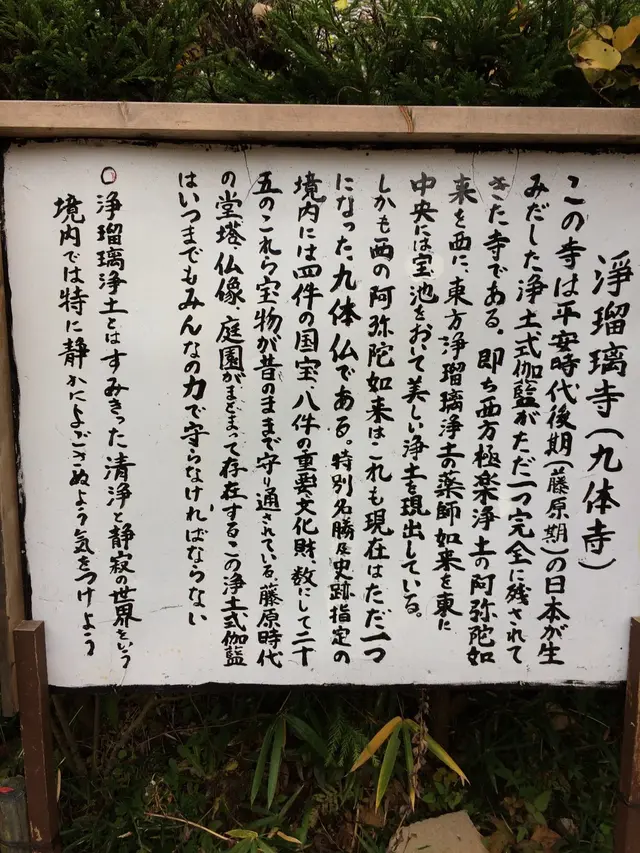 浄瑠璃寺(九体寺)
この寺は平安時代後期(藤原期)の日本が生
みだした浄土式伽藍がただ一つ完全に残されて
きた寺である。即ち西方極楽浄土の阿弥陀如
来を西に、東方浄瑠璃浄土の薬師如来を東に
中央には宝池をおいて美しい浄土を現出している。
しかも西の阿弥陀如来はこれも現在はただ一つ
になった、九体仏である。特別名勝及史跡指定の
境内には四件の国宝、八件の重要文化財、数にして二十
五のこれら宝物が昔のままで守り通されている。藤原時代
の堂塔、仏像、庭園がまとまって存在するこの浄土式伽藍
はいつまでもみんなの力で守らなければならない
○浄瑠璃浄土とはすみきった清浄と静寂の世界をいう
境内では特に静かによごさぬよう気をつけよう